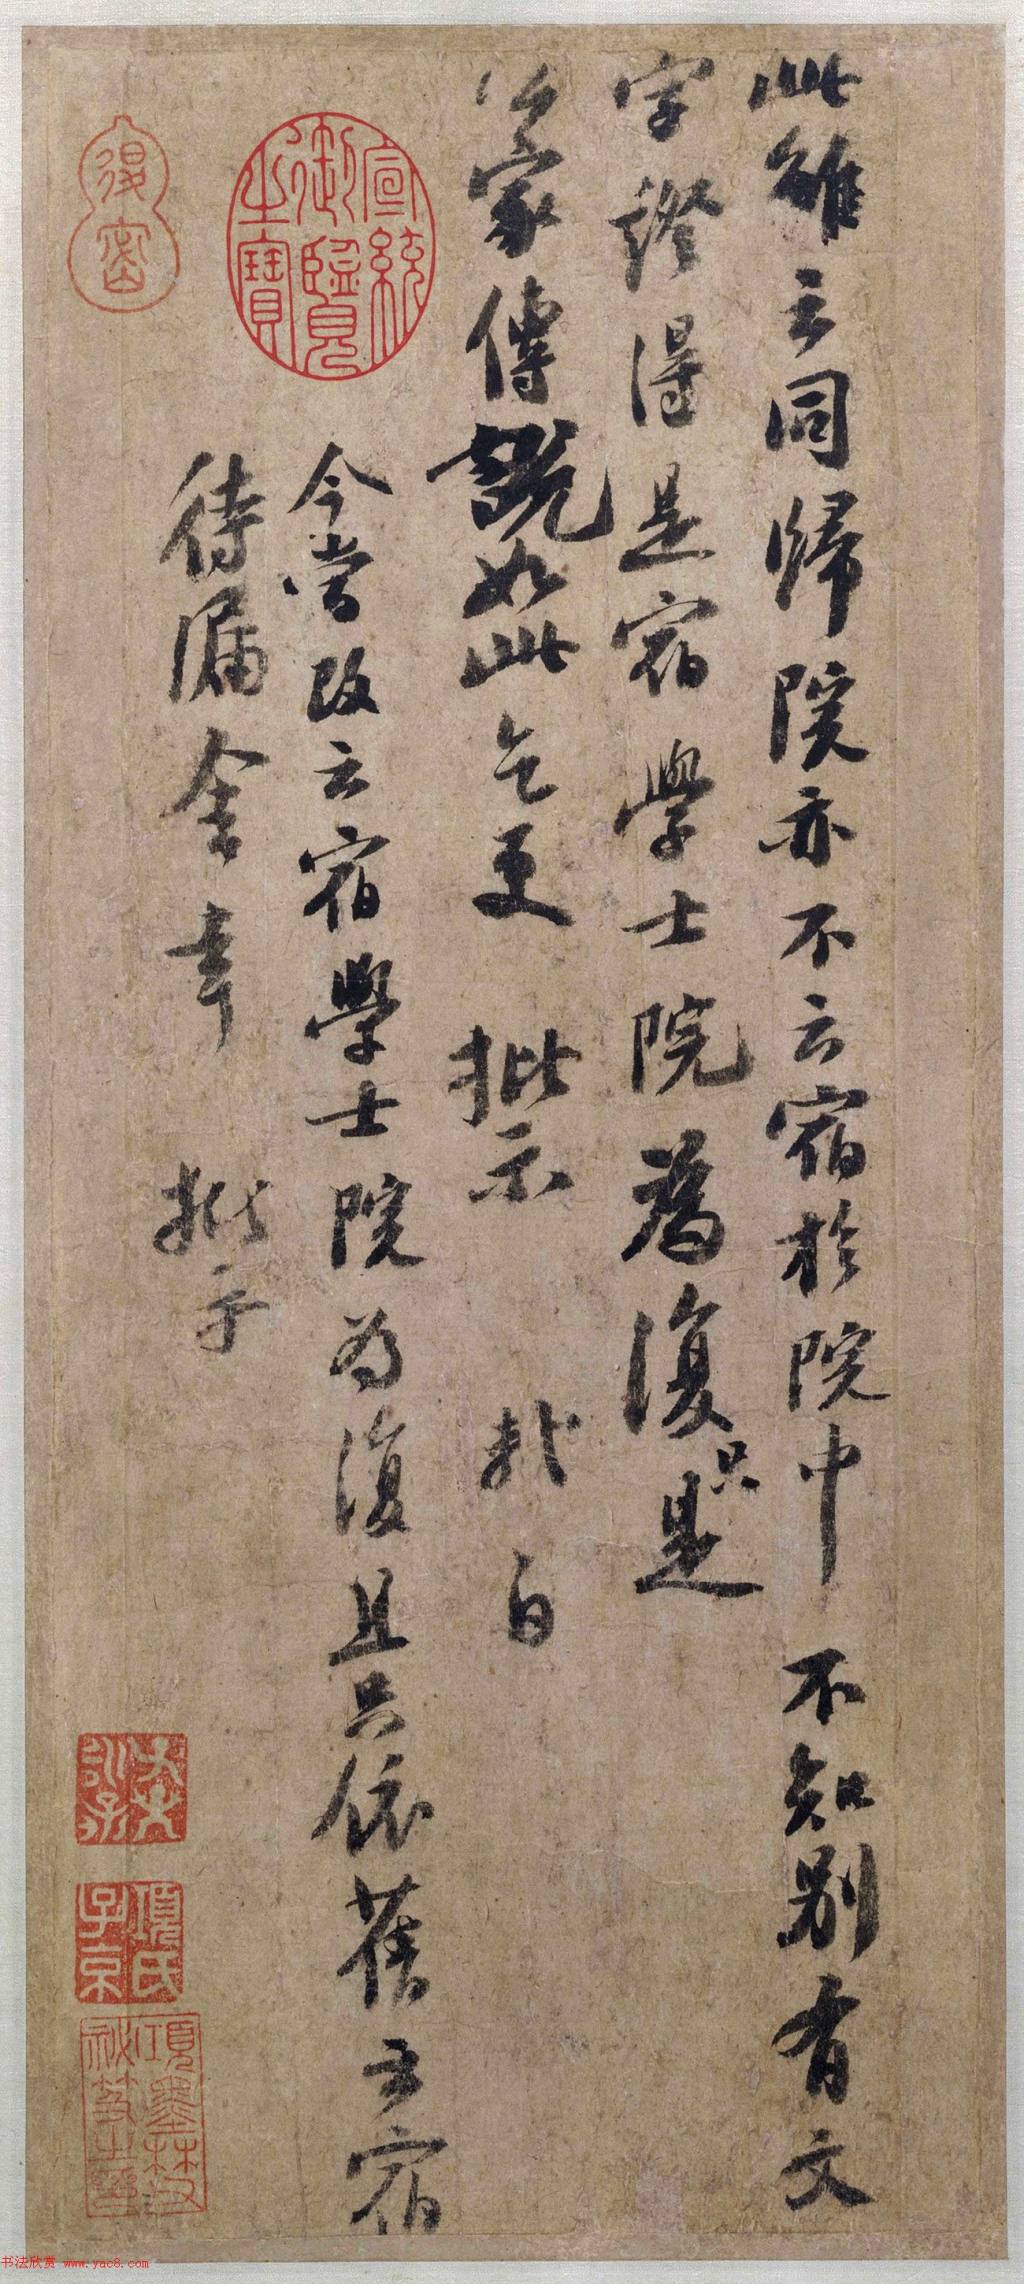 此雖云同歸院亦不云宿於院中不知別有文
字證得是宿學士院為復只是
公家傳說如此乞更批示 軾白
今嘗改云宿學士院為復且只依舊云宿
待漏舍幸 批示
宣統御覽之寶
項氏子京
項墨林祕笈之印
书法欣赏 www.yac8.com